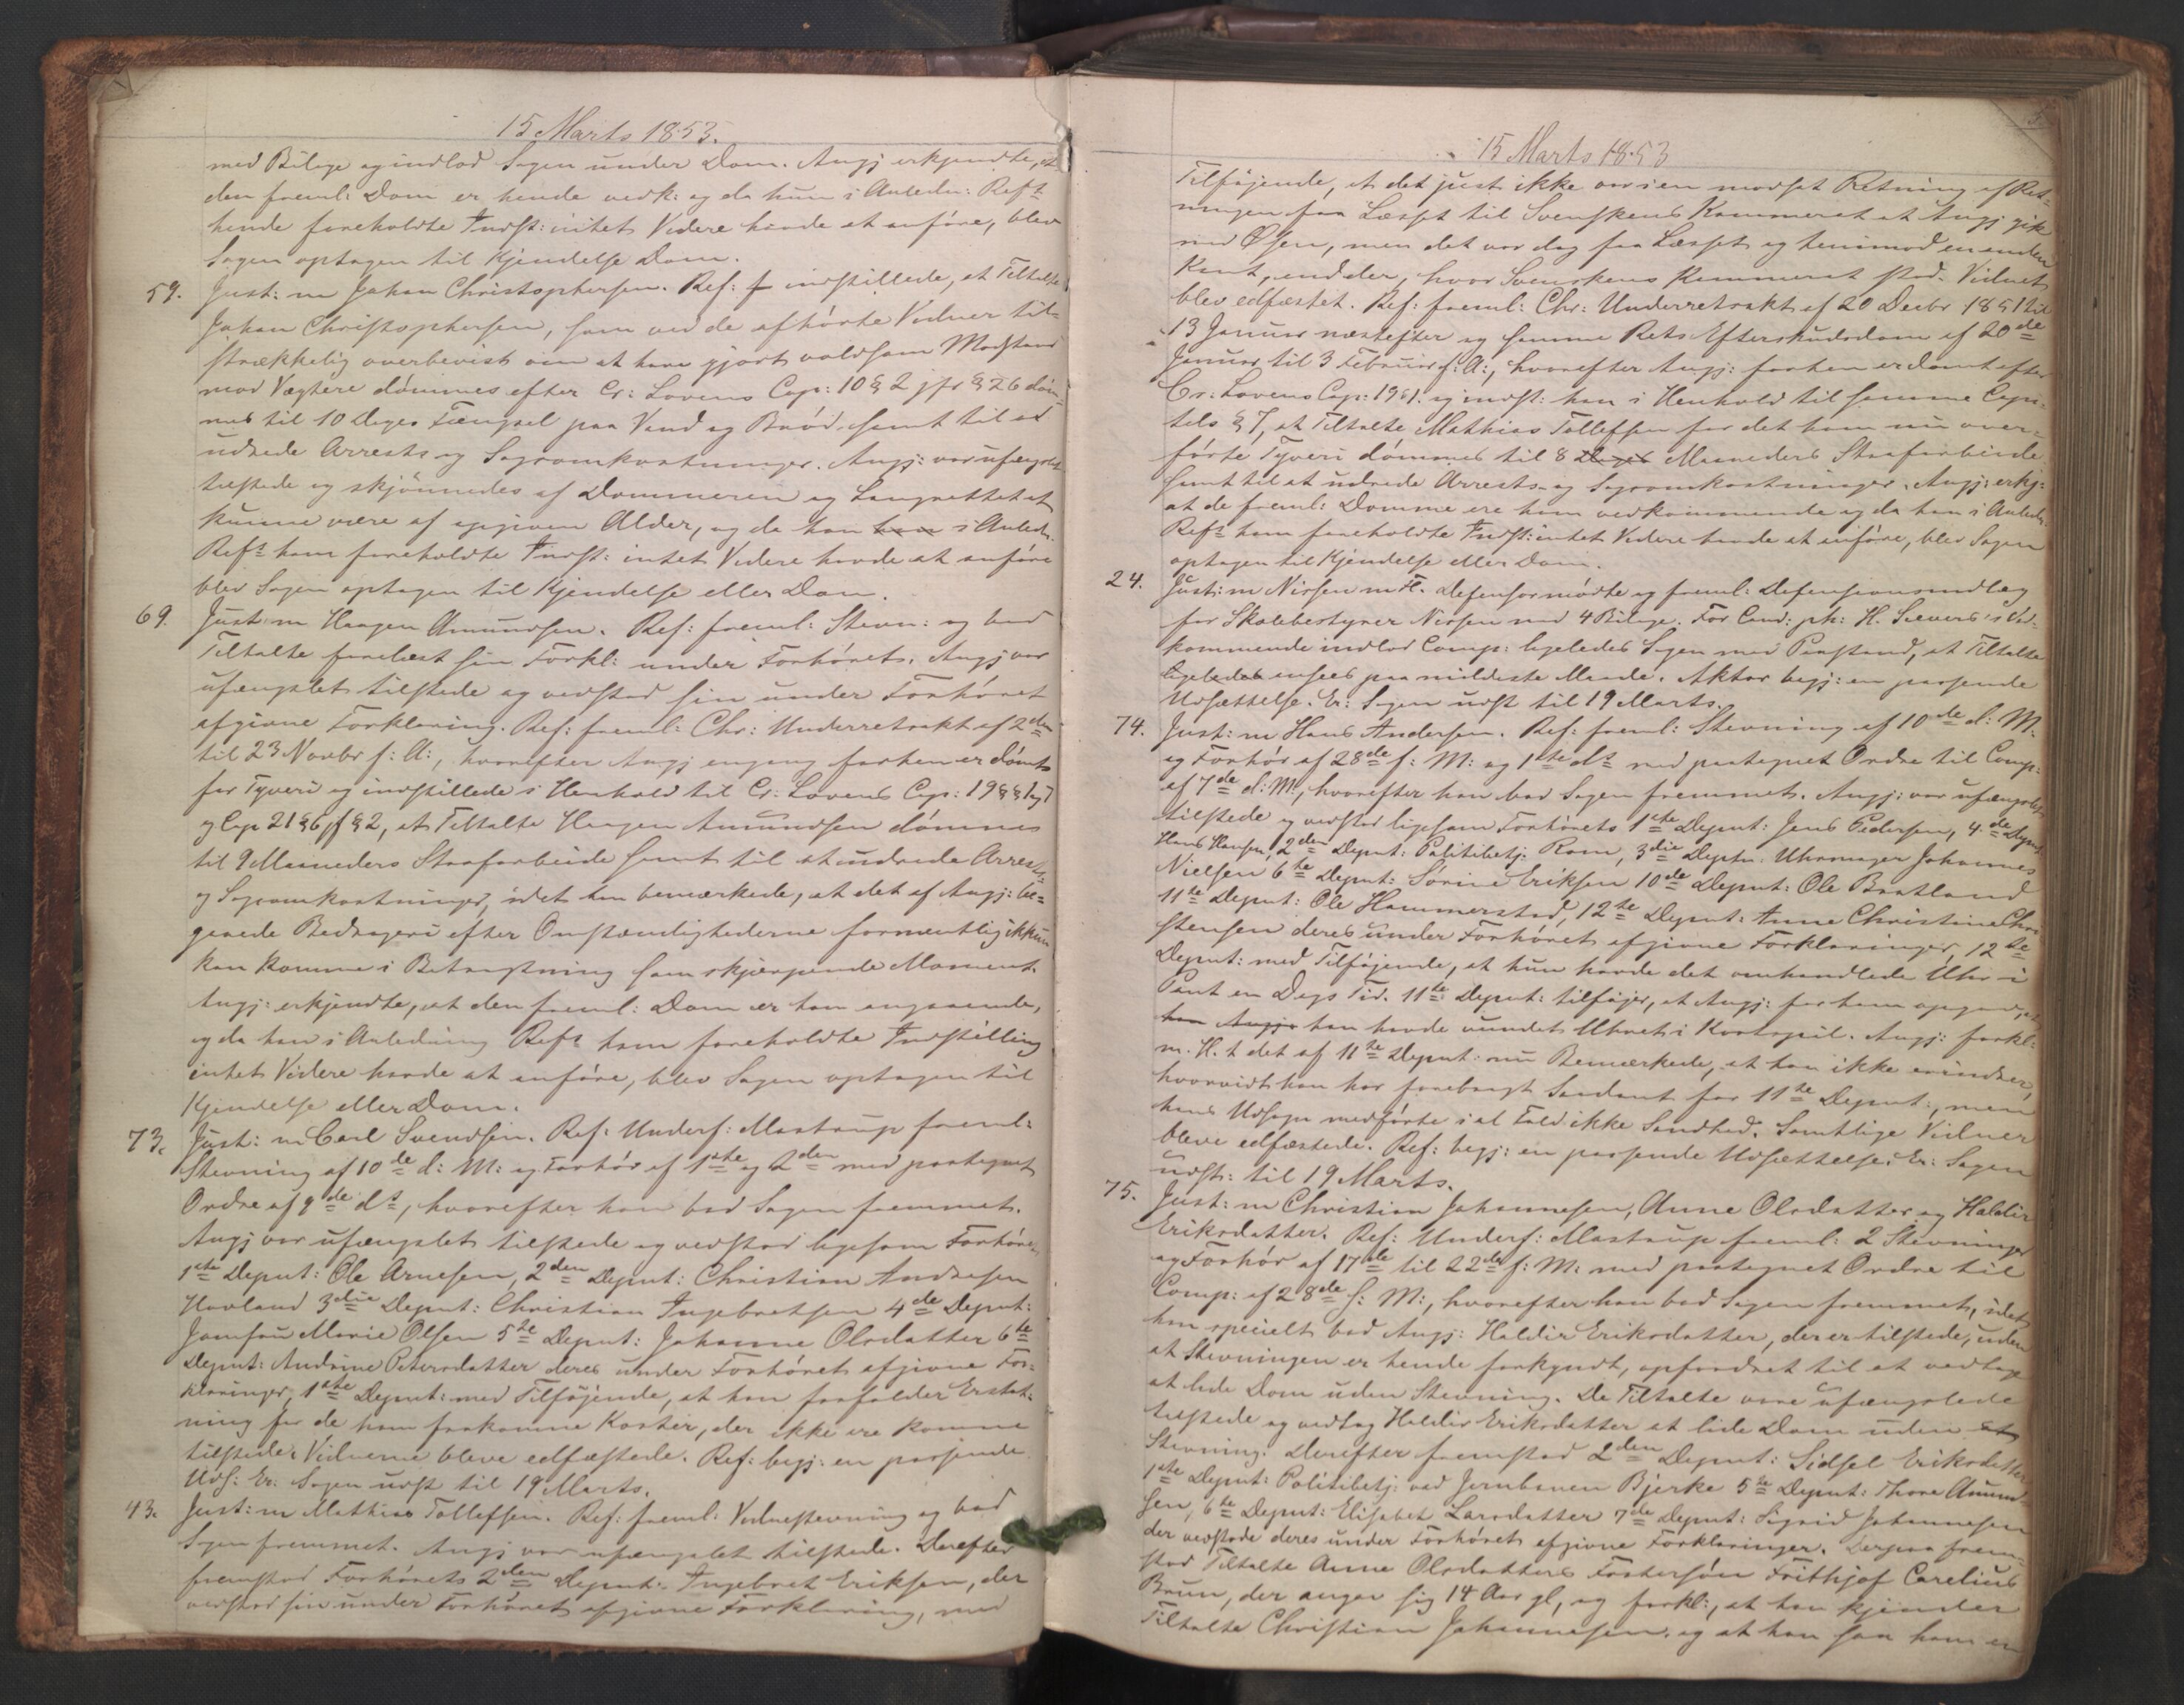 15 Marts 1853.
med Bilage og indlod Sagen under Dom. Angj erkjendte, at
den freml: Dom er hende vedk: og da hun i Anledn: Refts
hende foreholdte Indst: intet Videre havde at anføre, blev
Sagen optagen til Kjendelse Dom.
59. Just: m Johan Christophersen. Ref: indstillede, at Tiltalte
Johan Christophersen, som ved de afhørte Vidner til-
strækkelig overbevist om at have gjort voldsom Modstand
mod Vægtere dømmes efter Cr: Lovens Cap: 10 § 2 jfr § 26 døm-
mes til 10 Dages Fængsel paa Vand og Brød samt til at
udrede Arrests og Sagsomkostninger. Angj: var ufængslet
tilstede og skjønnedes af Dommeren og Laugrettet at
kunne være af opgiven Alder, og da han ham i Anledn.
Refts ham foreholdte Indst: intet Videre havde at anføre
blev Sagen optagen til Kjendelse eller Dom.
69. Just: m Haagen Amundsen. Ref: freml: Stevn: og bad
Tiltalte forelæst sin Forkl: under Forhøret. Angj var
ufængslet tilstede og vedstod sin under Forhøret
afgivne Forklaring. Ref: freml: Chr: Underretsakt af 2den
til 23 Novbr f: A:, hvorefter Angj engang forhen er dømt
for Tyveri og indstillede i Henhold til Cr: Lovens Cap: 19 §§ 1 og 7
og Cap 21 § 6 jf § 2, at Tiltalte Haagen Amundsen dømmes
til 9 Maaneders Strafarbeide samt til at udrede Arrests-
og Sagsomkostninger, idet han bemærkede, at det af Angj: be-
gaaede Bedrageri efter Omstændighederne formentlig ikkun
kan komme i Betragtning som skjærpende Moment.
Angj: erkjendte, at den freml: Dom er ham angaaende,
og da han i Anledning Refts ham foreholdte Indstilling
intet Videre havde at anføre, blev Sagen optagen til
Kjendelse eller Dom.
73. Just: m Carl Svendsen. Ref: Underf: Mastrup freml:
Stevning af 10de d: M: og Forhør af 1ste og 2den med paategnet
Ordre af 9de ds, hvorefter han bad Sagen fremmet.
Angj var ufængslet tilstede og vedstod ligesom Forhørets
1ste Deput: Ole Arnesen, 2den Deput: Christian Andresen
Hovland 3die Deput: Christian Ingebretsen 4de Deput:
Jomfru Marie Olsen 5te Deput: Johanne Olsdatter 6te
Deput: Andrine Petersdatter deres under Forhøret afgivne For-
klaringer, 1ste Deput: med Tilføjende, at han frafalder Erstat-
ning for de ham frakomne Koster, der ikke ere komne
tilstede. Vidnerne bleve edfæstede. Ref: begj: en passende
Uds: Er: Sagen udst til 19 Marts.
43. Just: m Mathias Tollefsen. Ref: freml: Vidnestevning og bad
Sagen fremmet. Angj var ufængslet tilstede. Derefter
fremstod Forhørets 2den Deput: Ingebret Eriksen, der
vedstod sin under Forhøret afgivne Forklaring, med
15 Marts 1853
Tilføjende, at det just ikke var i en modsat Retning af Ret-
ningen fra Læsset til Svenskens Kammerat at Angj gik
med Øsen, men det var dog fra Læsset og henimod en anden
Kant, end der, hvor Svenskens Kammerat stod. Vidnet
blev edfæstet. Ref: freml: Chr: Underretsakt af 20 Decbr 1851 til
13 Januar næstefter og samme Rets Efterskudsdom af 20de
Januar til 3 Februar f: A:, hvorefter Angj: forhen er dømt efter
Cr: Lovens Cap: 19 § 1. og indst: han i Henhold til samme Capi-
tels § 7, at Tiltalte Mathias Tollefsen for det ham nu over-
førte Tyveri dømmes til 8 Dages Maaneders Strafarbeide
samt til at udrede Arrests- og Sagsomkostninger. Angj: erkj:
at de freml: Domme ere ham vedkommende og da han i Anledn.
Refts ham foreholdte Indst: intet Videre havde at anføre, blev Sagen
optagen til Kjendelse eller Dom.
24. Just: m Nissen m Fl. Defensor mødte og freml: Defensionsindlæg
for Skolebestyrer Nissen med 4 Bilage. For Cand: ph: H. Sievers's Ved-
kommende indlod Comp: ligeledes Sagen med Paastand, at Tiltalte
ligeledes ansees paa mildeste Maade. Aktor begj: en passende
Udsættelse. Er: Sagen udst til 19 Marts.
74. Just: m Hans Andersen. Ref: freml: Stevning af 10de d: M:
og Forhør af 28de f: M: og 1ste ds med paategnet Ordre til Comp:
af 7de d: M:, hvorefter han bad Sagen fremmet. Angj: var ufængslet
tilstede og vedstod ligesom Forhørets 1ste Deput: Jens Pedersen, 4de Deput:
Hans Hansen, 2den Deput: Politibetj: Ram, 3die Deput: Uhrmager Johannes
Nielsen 6te Deput: Sørine Eriksen 10de Deput: Ole Bratland
11te Deput: Ole Hammerstad, 12te Deput: Anne Christine Chri-
stensen deres under Forhøret afgivne Forklaringer, 12te
Deput: med Tilføjende, at hun havde det omhandlede Uhr i
Pant en Dags Tid. 11te Deput: tilføjer, at Angj: for ham opgav, at
han Angj: han havde vundet Uhret i Kortspil. Angj: forkl:
m. H. t det af 11te Deput: nu Bemærkede, at han ikke erindrer,
hvorvidt han har forebragt Saadant for 11te Deput:, men
hans Udsagn medførte i al Fald ikke Sandhed. Samtlige Vidner
bleve edfæstede. Ref: begj: en passende Udsættelse. Er: Sagen
udst: til 19 Marts.
75. Just: m Christian Johannesen, Anne Olsdatter og Haldis
Eriksdatter. Ref: Underf: Mastrup freml: 2 Stevninger
og Forhør af 17de til 22de f: M: med paategnet Ordre til
Comp: af 28de f: M:, hvorefter han bad Sagen fremmet, idet
han specielt bad Angj: Haldis Eriksdatter, der er tilstede, uden
at Stevningen er hende forkyndt, opfordret til at vedtage
at lide Dom uden Stevning. De Tiltalte vare ufængslede
tilstede og vedtog Haldis Eriksdatter at lide Dom uden at
Stevning. Derefter fremstod 2den Deput: Sidsel Eriksdatter
1ste Deput: Politibetj: ved Jernbanen Bjerke 5te Deput: Thore Amund-
sen, 6te Deput: Elisabet Larsdatter 7de Deput: Sigrid Johannesen
der vedstode deres under Forhøret afgivne Forklaringer. Derpaa frem-
stod Tiltalte Anne Olsdatters Fostersøn Frithjof Carelius
Bruun, der angav sig 14 Aar gl, og forkl:, at han kjender
Tiltalte Christian Johannesen, og at han saa ham en